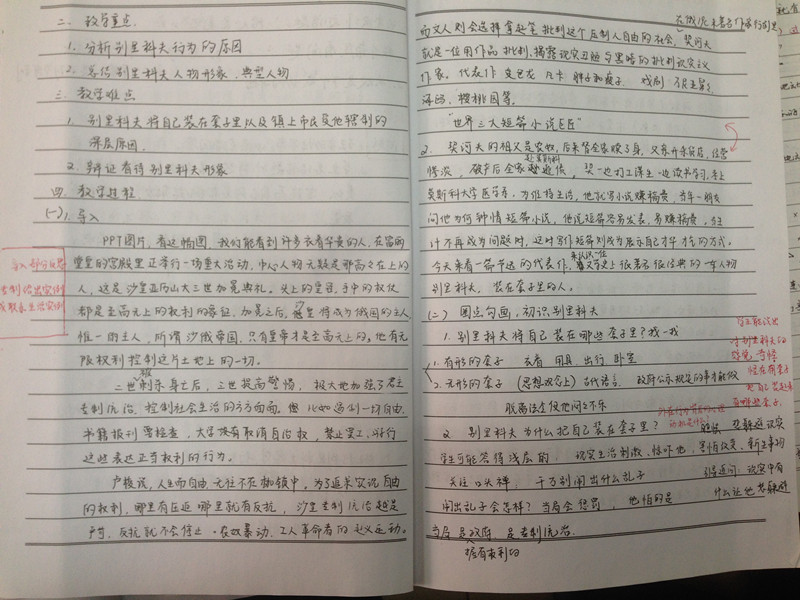 二. 教学重点.
1. 分析别里科夫行为的原因
2. 总结别里科夫人物形象, 典型人物
三. 教学难点
1. 别里科夫将自己装在套子里以及镇上市民受他辖制的
深层原因.
2. 辩证看待别里科夫形象
四. 教学过程
(一)1. 导入
PPT图片, 看这幅图, 我们能看到许多衣着华贵的人, 在富丽
堂皇的宫殿里正举行一场重大活动, 中心人物无疑是那高高在上的
人, 这是沙皇亚历山大三世加冕典礼. 头上的皇冠, 手中的权杖
都是至高无上的权利的象征, 加冕之后, 沙皇将成为俄国的主人
惟一的主人, 所谓沙俄帝国, 只有皇帝才是至高无上的, 他有无
限权利控制这片土地上的一切.
二世被刺杀身亡后, 三世提高警惕, 极大地加强了君主
专制统治, 控制社会生活的方方面面, 比如遏制一切自由
书籍报刊需检查, 大学没有取消自治权, 禁止罢工、游行
这些表达正等权利的行为.
卢梭说, 人生而自由, 无往不在枷锁中, 为了追求实现自由
的权利, 哪里有压迫哪里就有反抗, 沙皇专制统治越是
严苛, 反抗就不会停止. 农奴暴动, 工人革命者的起义运动.
而文人则会选择拿起笔批判这个压制人自由的社会, 契诃夫
就是一位用作品批判、揭露现实丑陋与黑暗的批判现实主义
作家. 代表作 变色龙 凡卡 胖子和瘦子. 戏剧
海鸥, 樱桃园等.
"世界三大短篇小说巨匠"
2. 契诃夫的祖父是农奴, 后来替全家赎了身, 父亲开杂货店, 经营
惨淡, 破产后全家赴莫斯科, 契一边打工谋生一边读书学习, 考上
莫斯科大学医学系, 为维持生活, 他就写小说赚稿费, 当年一朋友
问他为何钟情短篇小说, 他说短篇容易发表, 易赚稿费, 当生
计不再成为问题时, 这时写作短篇则成为展示自己才华才气的方式.
今天来看一篇节选的代表作, 来认识一位文学史上很著名很经典的一个人物
别里科夫, 装在套子里的人.
(二) 圈点勾画, 初识别里科夫
1. 别里科夫将自己装在哪些套子里? 找一找
1. 有形的套子 衣着 用具, 出行 卧室
2. 无形的套子 (思想观念上) 古代语言. 政府公示规定的事才能做
脱离法令使他闷闷不乐
2. 别里科夫为什么把自己装在套子里?
学生可能答得浅层的, 现实生活刺激、惊吓他, 害怕改变、新生事物
关注口头禅, 千万别闹出什么乱子
闹出乱子会怎样? 当局会惩罚, 他怕的是
当局 是政府, 是专制统治.
握有权利的